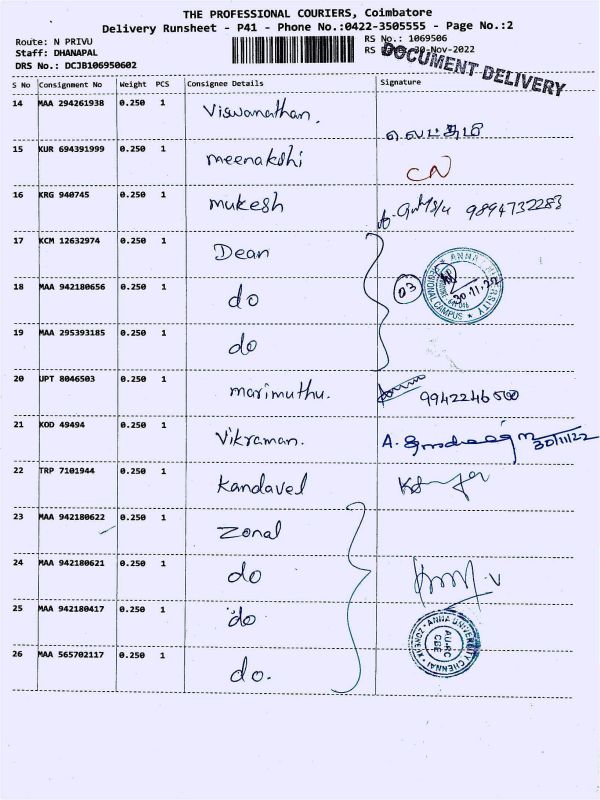 THE PROFESSIONAL COURIERS, Coimbatore
Delivery Runsheet - P41 - Phone No.:0422-3505555 - Page No.:2
Route: N PRIVU
RS No.: 1069506
Staff: DHANAPAL
RS Date: 30-Nov-2022
DRS No.: DCJB106950602
DOCUMENT DELIVERY
S No Consignment No Weight PCS Consignee Details Signature
14 MAA 294261938 0.250 1 Viswanathan.
15 KUR 694391999 0.250 1 meenakshi CN
16 KRG 940745 0.250 1 mukesh 9894732283
17 KCM 12632974 0.250 1 Dean
18 MAA 942180656 0.250 1 do 03 30.11.22
ANNA UNIVERSITY REGIONAL CAMPUS
19 MAA 295393185 0.250 1 do
20 UPT 8046503 0.250 1 marimuthu. 9942246500
21 KOD 49494 0.250 1 Vikraman. A. 30/11/22
22 TRP 7101944 0.250 1 Kandavel
23 MAA 942180622 0.250 1 Zonal
24 MAA 942180621 0.250 1 do
25 MAA 942180417 0.250 1 do
ANNA UNIVERSITY CHENNAI
26 MAA 565702117 0.250 1 do.